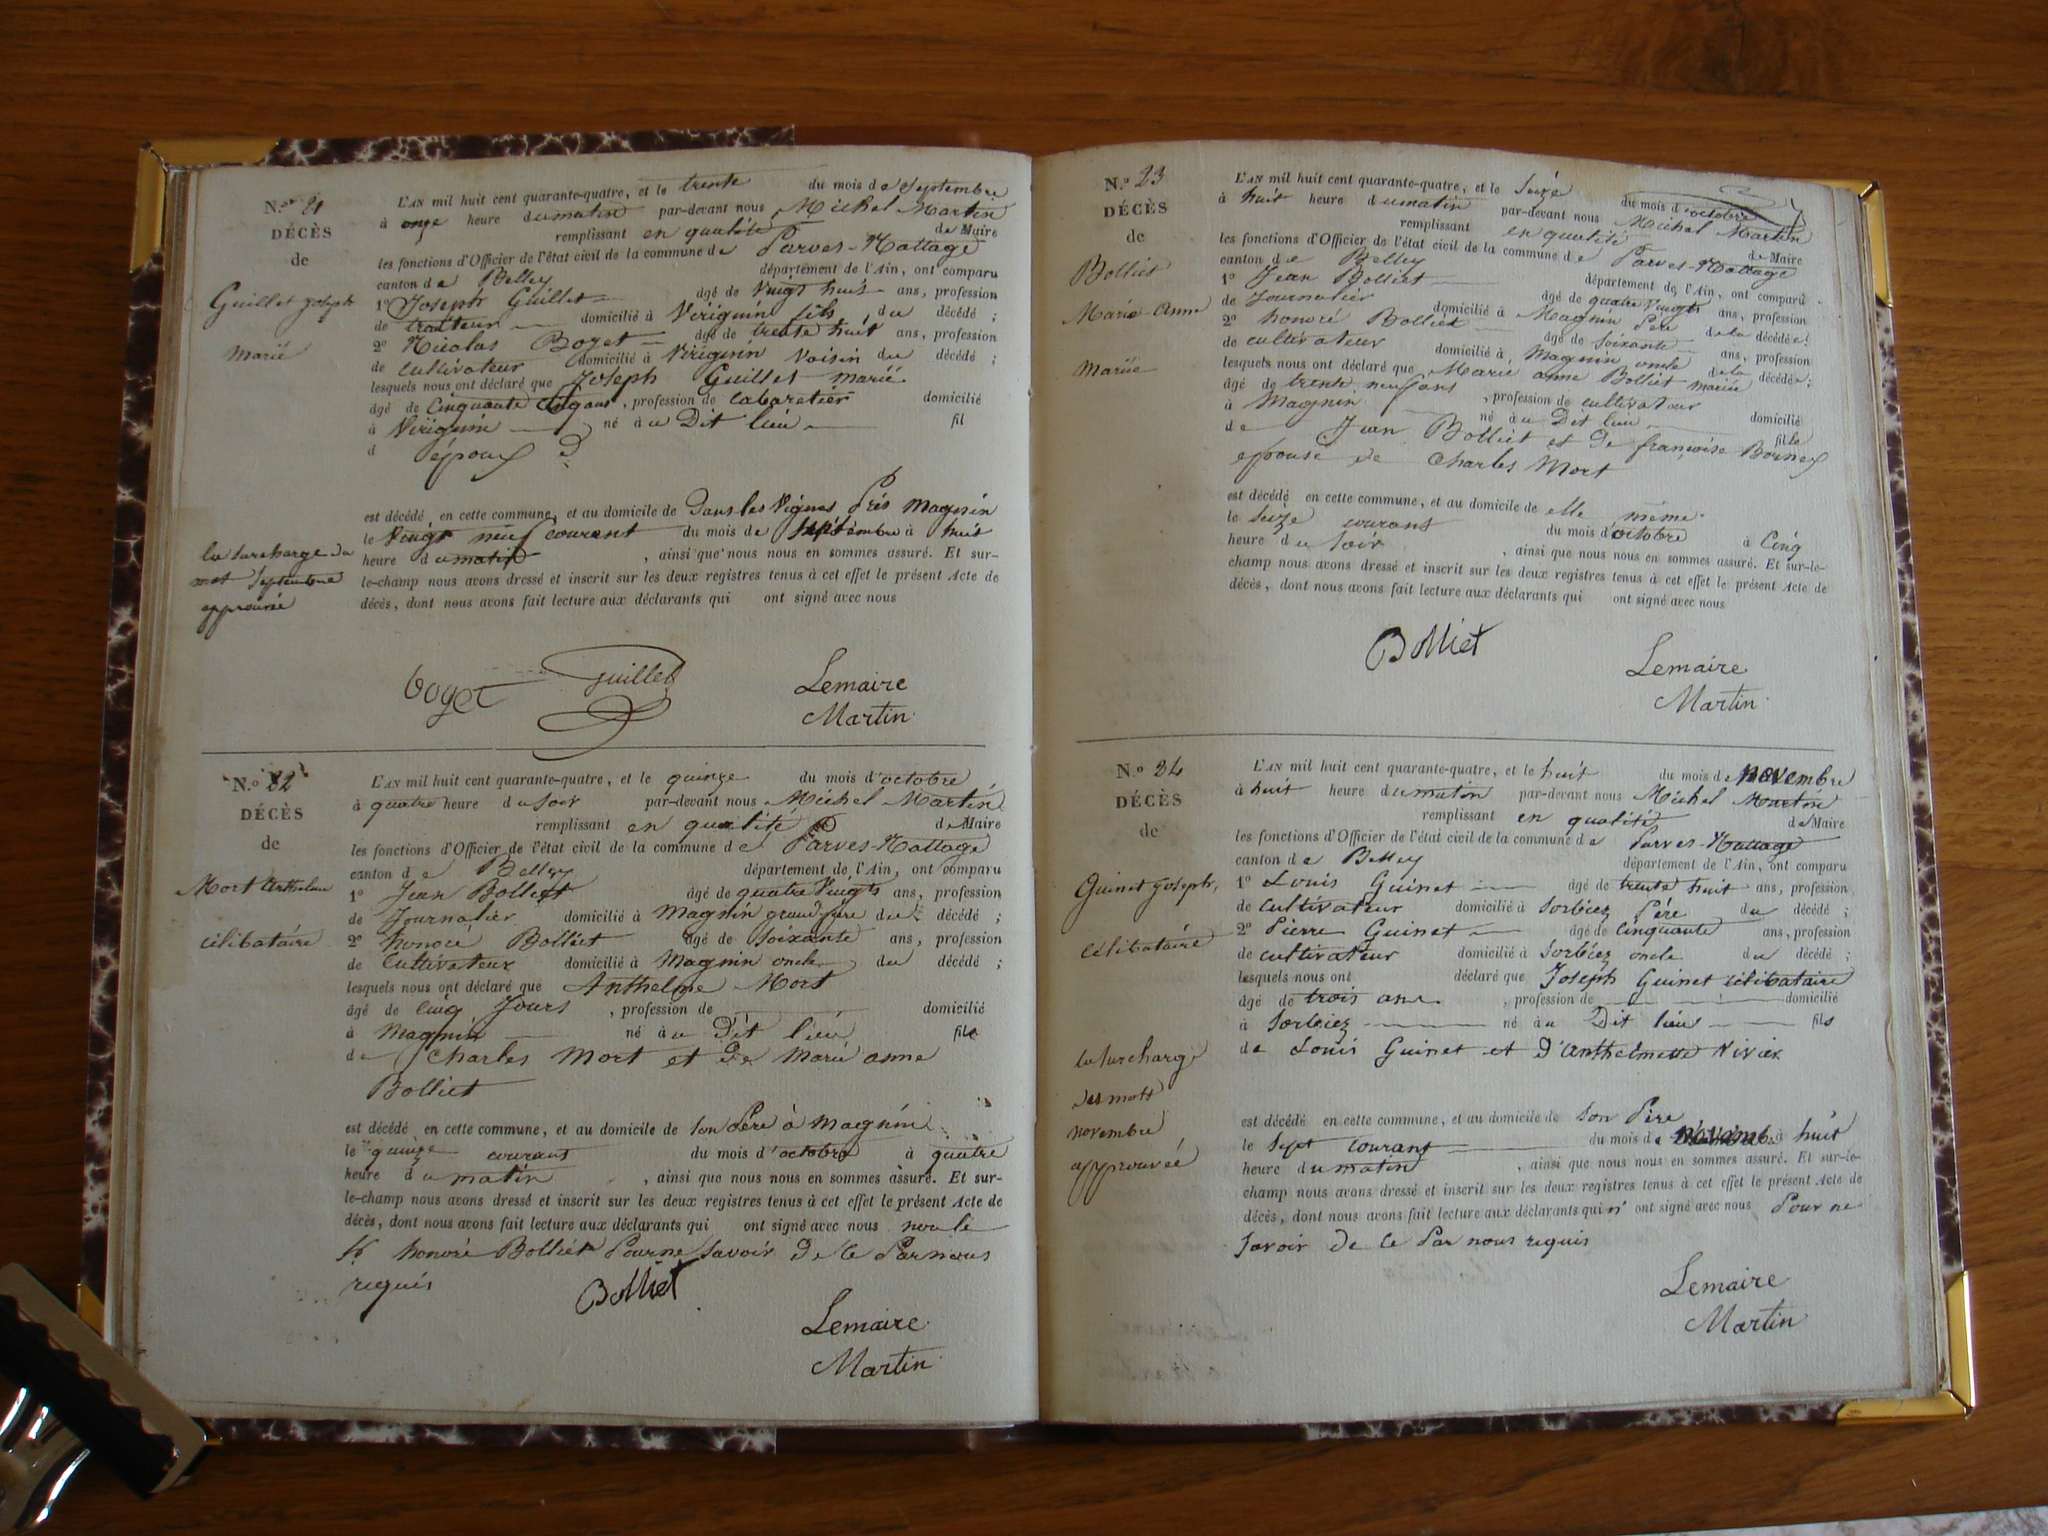 N.° 21
DÉCÈS
de
Guillet Joseph
Marié
la surcharge du
mot Septembre
approuvée
L'AN mil huit cent quarante-quatre, et le trente du mois de Septembre
à onze heure du matin par-devant nous Michel Martin
remplissant en qualité de Maire
les fonctions d'Officier de l'état civil de la commune de Parves-Nattage
canton de Belley département de l'Ain, ont comparu
1° Joseph Guillet âgé de Vingt huit ans, profession
de traiteur domicilié à Virignin fils du décédé ;
2° Nicolas Boget âgé de trente huit ans, profession
de cultivateur domicilié à Virignin Voisin du décédé ;
lesquels nous ont déclaré que Joseph Guillet marié
âgé de Cinquante Cinq ans, profession de Cabaretier domicilié
à Virignin né à u Dit lieu fil
d époux d
est décédé en cette commune, et au domicile de Dans les Vignes Près Magnin
le Vingt neuf courant du mois de Septembre à huit
heure du matin, ainsi que nous nous en sommes assuré. Et sur-
le-champ nous avons dressé et inscrit sur les deux registres tenus à cet effet le présent Acte de
décès, dont nous avons fait lecture aux déclarants qui ont signé avec nous
Boget Guillet Lemaire
Martin
N.° 22
DÉCÈS
de
Mort Anthelme
célibataire
L'AN mil huit cent quarante-quatre, et le quinze du mois d'octobre
à quatre heure du Soir par-devant nous Michel Martin
remplissant en qualité de Maire
les fonctions d'Officier de l'état civil de la commune de Parves-Nattage
canton de Belley département de l'Ain, ont comparu
1° Jean Bolliet âgé de quatre Vingts ans, profession
de Journalier domicilié à Magnin grand père du décédé ;
2° honoré Bolliet âgé de Soixante ans, profession
de Cultivateur domicilié à Magnin oncle du décédé ;
lesquels nous ont déclaré que Anthelme Mort
âgé de Cinq Jours, profession de domicilié
à Magnin né à u Dit lieu fils
de Charles Mort et de Marie anne
Bolliet
est décédé en cette commune, et au domicile de Son Père à Magnin
le quinze courant du mois d'octobre à quatre
heure du matin, ainsi que nous nous en sommes assuré. Et sur-
le-champ nous avons dressé et inscrit sur les deux registres tenus à cet effet le présent Acte de
décès, dont nous avons fait lecture aux déclarants qui ont signé avec nous non le
honoré Bolliet Pour ne Savoir De ce Par nous
requis Bolliet
Lemaire
Martin
N.° 23
DÉCÈS
de
Bolliet
Marie Anne
Mariée
L'AN mil huit cent quarante-quatre, et le Seize du mois d'octobre
à huit heure du matin par-devant nous Michel Martin
remplissant en qualité de Maire
les fonctions d'Officier de l'état civil de la commune de Parves-Nattage
canton de Belley département de l'Ain, ont comparu
1° Jean Bolliet âgé de quatre Vingts ans, profession
de Journalier domicilié à Magnin Père de la décédée ;
2° honoré Bolliet âgé de Soixante ans, profession
de cultivateur domicilié à Magnin oncle de la décédée ;
lesquels nous ont déclaré que Marie anne Bolliet mariée
âgé de trente neuf ans, profession de cultivateur
à Magnin né à u Dit lieu domicilié
de Jean Bolliet et De françoise Borney fille
épouse de Charles Mort
est décédé en cette commune, et au domicile de elle même
le Seize courant du mois d'octobre à Cinq
heure du Soir, ainsi que nous nous en sommes assuré. Et sur-le-
champ nous avons dressé et inscrit sur les deux registres tenus à cet effet le présent Acte de
décès, dont nous avons fait lecture aux déclarants qui ont signé avec nous
Bolliet Lemaire
Martin
N.° 24
DÉCÈS
de
Guinet Joseph
Célibataire
la surcharge
des mots
novembre
approuvée
L'AN mil huit cent quarante-quatre, et le huit du mois de Novembre
à huit heure du matin par-devant nous Michel Martin
remplissant en qualité de Maire
les fonctions d'Officier de l'état civil de la commune de Parves-Nattage
canton de Belley département de l'Ain, ont comparu
1° Louis Guinet âgé de trente huit ans, profession
de Cultivateur domicilié à Sorbiez Père du décédé ;
2° Pierre Guinet âgé de Cinquante ans, profession
de cultivateur domicilié à Sorbiez oncle du décédé ;
lesquels nous ont déclaré que Joseph Guinet célibataire
âgé de trois ans, profession de domicilié
à Sorbiez né à u Dit lieu fils
de Louis Guinet et D'Anthelmette Vivier
est décédé en cette commune, et au domicile de Son Père
le Sept courant du mois de Novembre à huit
heure du matin, ainsi que nous nous en sommes assuré. Et sur-le-
champ nous avons dressé et inscrit sur les deux registres tenus à cet effet le présent Acte de
décès, dont nous avons fait lecture aux déclarants qui n' ont signé avec nous Pour ne
Savoir de ce Par nous requis
Lemaire
Martin